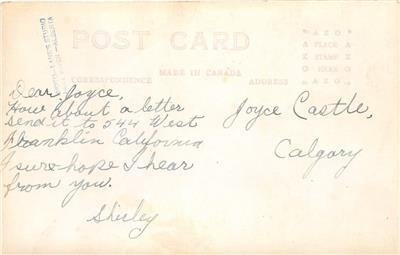 POST CARD
CORRESPONDENCE
MADE IN CANADA
ADDRESS
AZO
PLACE
STAMP
HERE
AZO
Dear Joyce,
How about a letter
send it to 544 West
Franklin California
I sure hope I hear
from you.
Shirley
Joyce Castle,
Calgary